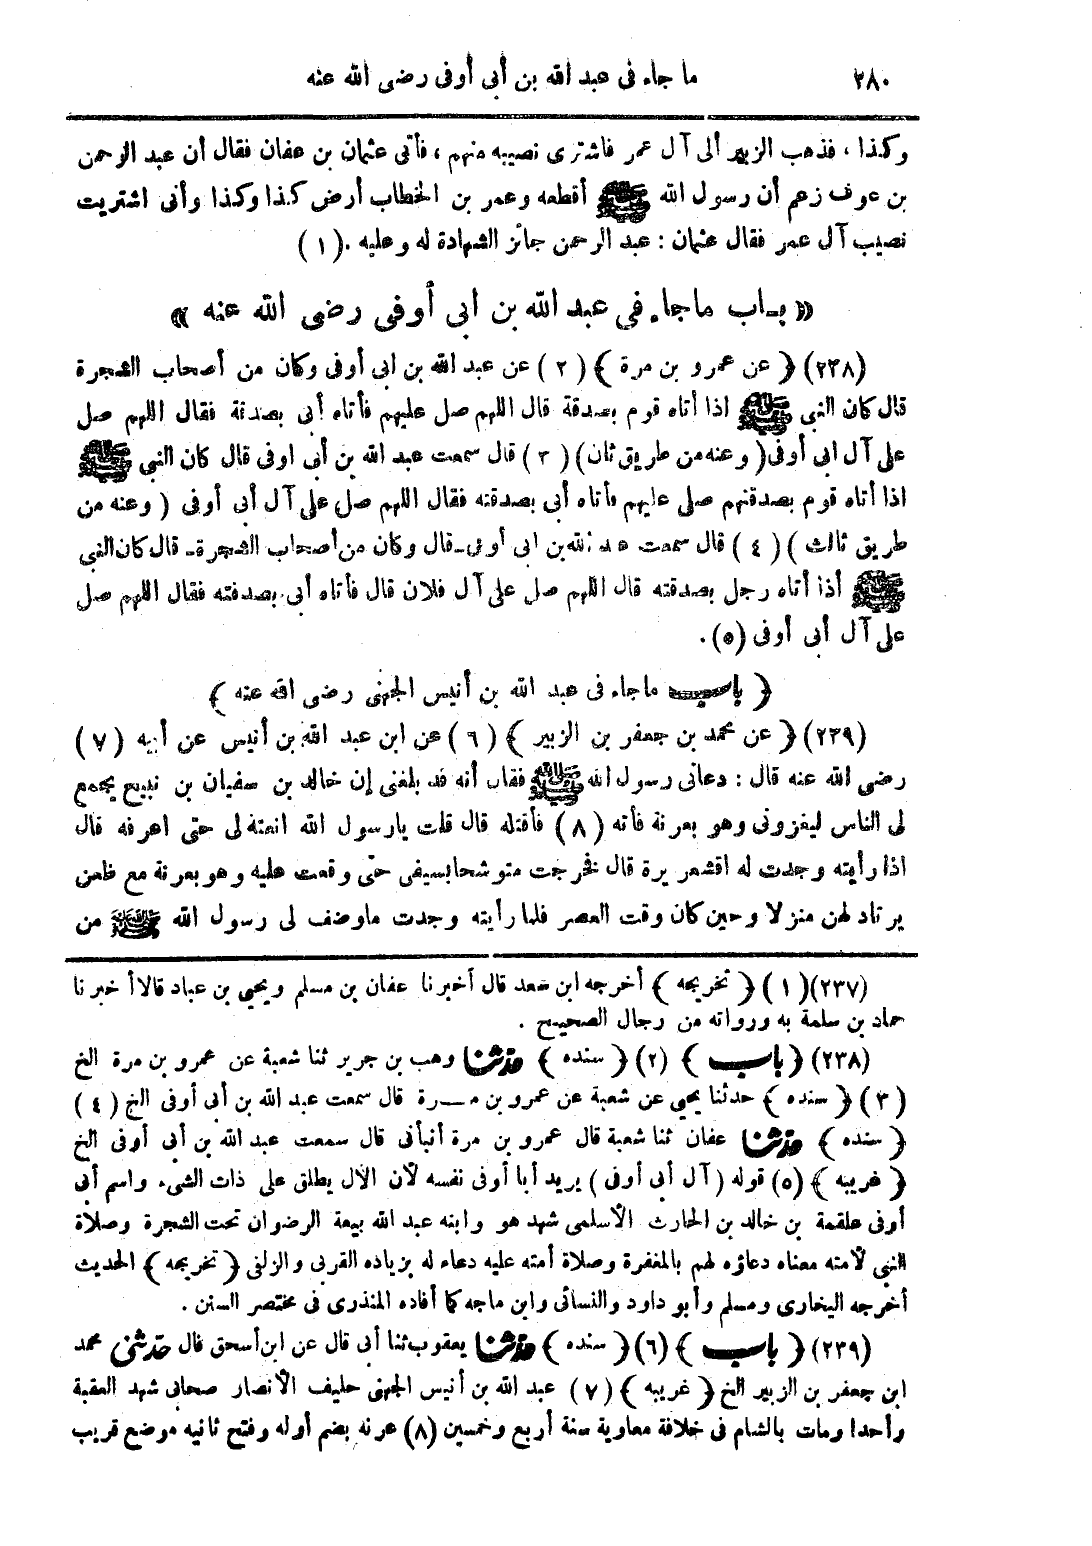 ٢٨٠ ما جاء فى عبد الله بن أبى أوفى رضى الله عنه
وكذا ، فذهب الزبير ألى آل عمر فاشترى نصيبه منهم ، فأتى عثمان بن عفان فقال أن عبد الرحمن
بن عوف زعم أن رسول الله ﷺ أقطعه وعمر بن الخطاب أرض كذا وكذا وأنى اشتريت
نصيب آل عمر فقال عثمان : عبد الرحمن جائز الشهادة له وعليه .(١)
« باب ماجاء فى عبد الله بن ابى أوفى رضى الله عنه »
(٢٣٨) ﴿ عن عمرو بن مرة ﴾ (٢) عن عبد الله بن ابى أوفى وكان من أصحاب الشجرة
قال كان النبى ﷺ اذا أتاه قوم بصدقة قال اللهم صل عليهم فأتاه أبى بصدقة فقال اللهم صل
على آل ابى أوفى ( وعنه من طريق ثان ) (٣) قال سمعت عبد الله بن أبى اوفى قال كان النبى ﷺ
اذا أتاه قوم بصدقتهم صلى عليهم فأتاه أبى بصدقته فقال اللهم صل على آل أبى أوفى ( وعنه من
طريق ثالث ) (٤) قال سمعت عبد الله بن ابى أوفى-قال وكان من أصحاب الشجرة- قال كان النبى
ﷺ أذا أتاه رجل بصدقته قال اللهم صل على آل فلان قال فأتاه أبى بصدقته فقال اللهم صل
على آل أبى أوفى (٥).
﴿ باب ماجاء فى عبد الله بن أنيس الجهنى رضى الله عنه ﴾
(٢٣٩) ﴿ عن محمد بن جعفر بن الزبير ﴾ (٦) عن ابن عبد الله بن أنيس عن أبيه (٧)
رضى الله عنه قال : دعانى رسول الله ﷺ فقال أنه قد بلغنى إن خالد بن سفيان بن نبيح يجمع
لى الناس ليغزونى وهو بعرنة فأته (٨) فأقتله قال قلت يارسول الله انعته لى حتى اعرفه قال
اذا رأيته وجدت له اقشعريرة قال فخرجت متوشحا بسيفى حتى وقعت عليه وهو بعرنة مع ظعن
يرتاد لهن منزلا وحين كان وقت العصر فلما رأيته وجدت ماوصف لى رسول الله ﷺ من
(٢٣٧) (١) ﴿ تخريجه ﴾ أخرجه ابن سعد قال أخبرنا عفان بن مسلم ويحيى بن عباد قالا أخبرنا
حماد بن سلمة به ورواته من رجال الصحيح .
(٢٣٨) ﴿ باب ﴾ (٢) ﴿ سنده ﴾ حدثنا وهب بن جرير ثنا شعبة عن عمرو بن مرة الخ
(٣) ﴿ سنده ﴾ حدثنا يحيى عن شعبة عن عمرو بن مـــرة قال سمعت عبد الله بن أبى أوفى الخ (٤)
﴿ سنده ﴾ حدثنا عفان ثنا شعبة قال عمرو بن مرة أنبأنى قال سمعت عبد الله بن أبى أوفى الخ
﴿ غريبه ﴾ (٥) قوله ( آل أبى أوفى ) يريد أبا أوفى نفسه لأن الآل يطلق على ذات الشىء واسم أبى
أوفى علقمة بن خالد بن الحارث الأسلمى شهد هو وابنه عبد الله بيعة الرضوان تحت الشجرة وصلاة
النبى لأمته معناه دعاؤه لهم بالمغفرة وصلاة أمته عليه دعاء له بزياده القربى والزلفى ﴿ تخريجه ﴾ الحديث
أخرجه البخارى ومسلم وأبو داود والنسائى وابن ماجه كما أفاده المنذرى فى مختصر السنن .
(٢٣٩) ﴿ باب ﴾ (٦) ﴿ سنده ﴾ حدثنا يعقوب ثنا أبى قال عن ابن أسحق قال حدثنى محمد
ابن جعفر بن الزبير الخ ﴿ غريبه ﴾ (٧) عبد الله بن أنيس الجهنى حليف الأنصار صحابى شهد العقبة
وأحدا ومات بالشام فى خلافة معاوية سنة أربع وخمسين (٨) عرنه بضم أوله وفتح ثانيه موضع قريب